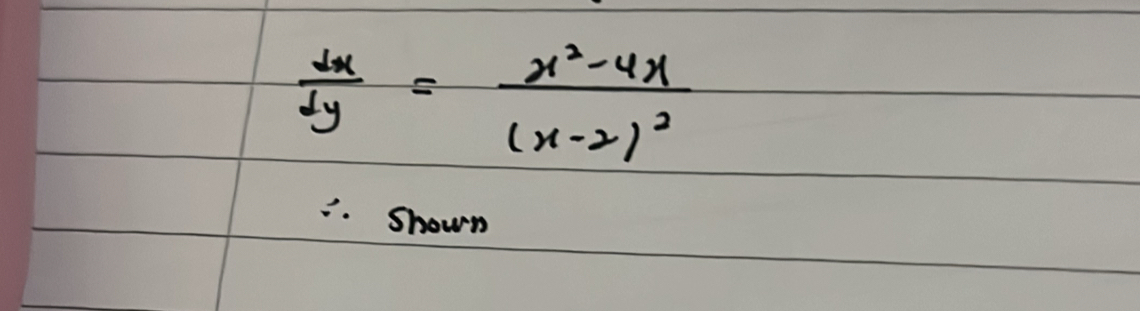 dx/dy = x² - 4x / (x - 2)²
∴ Shown